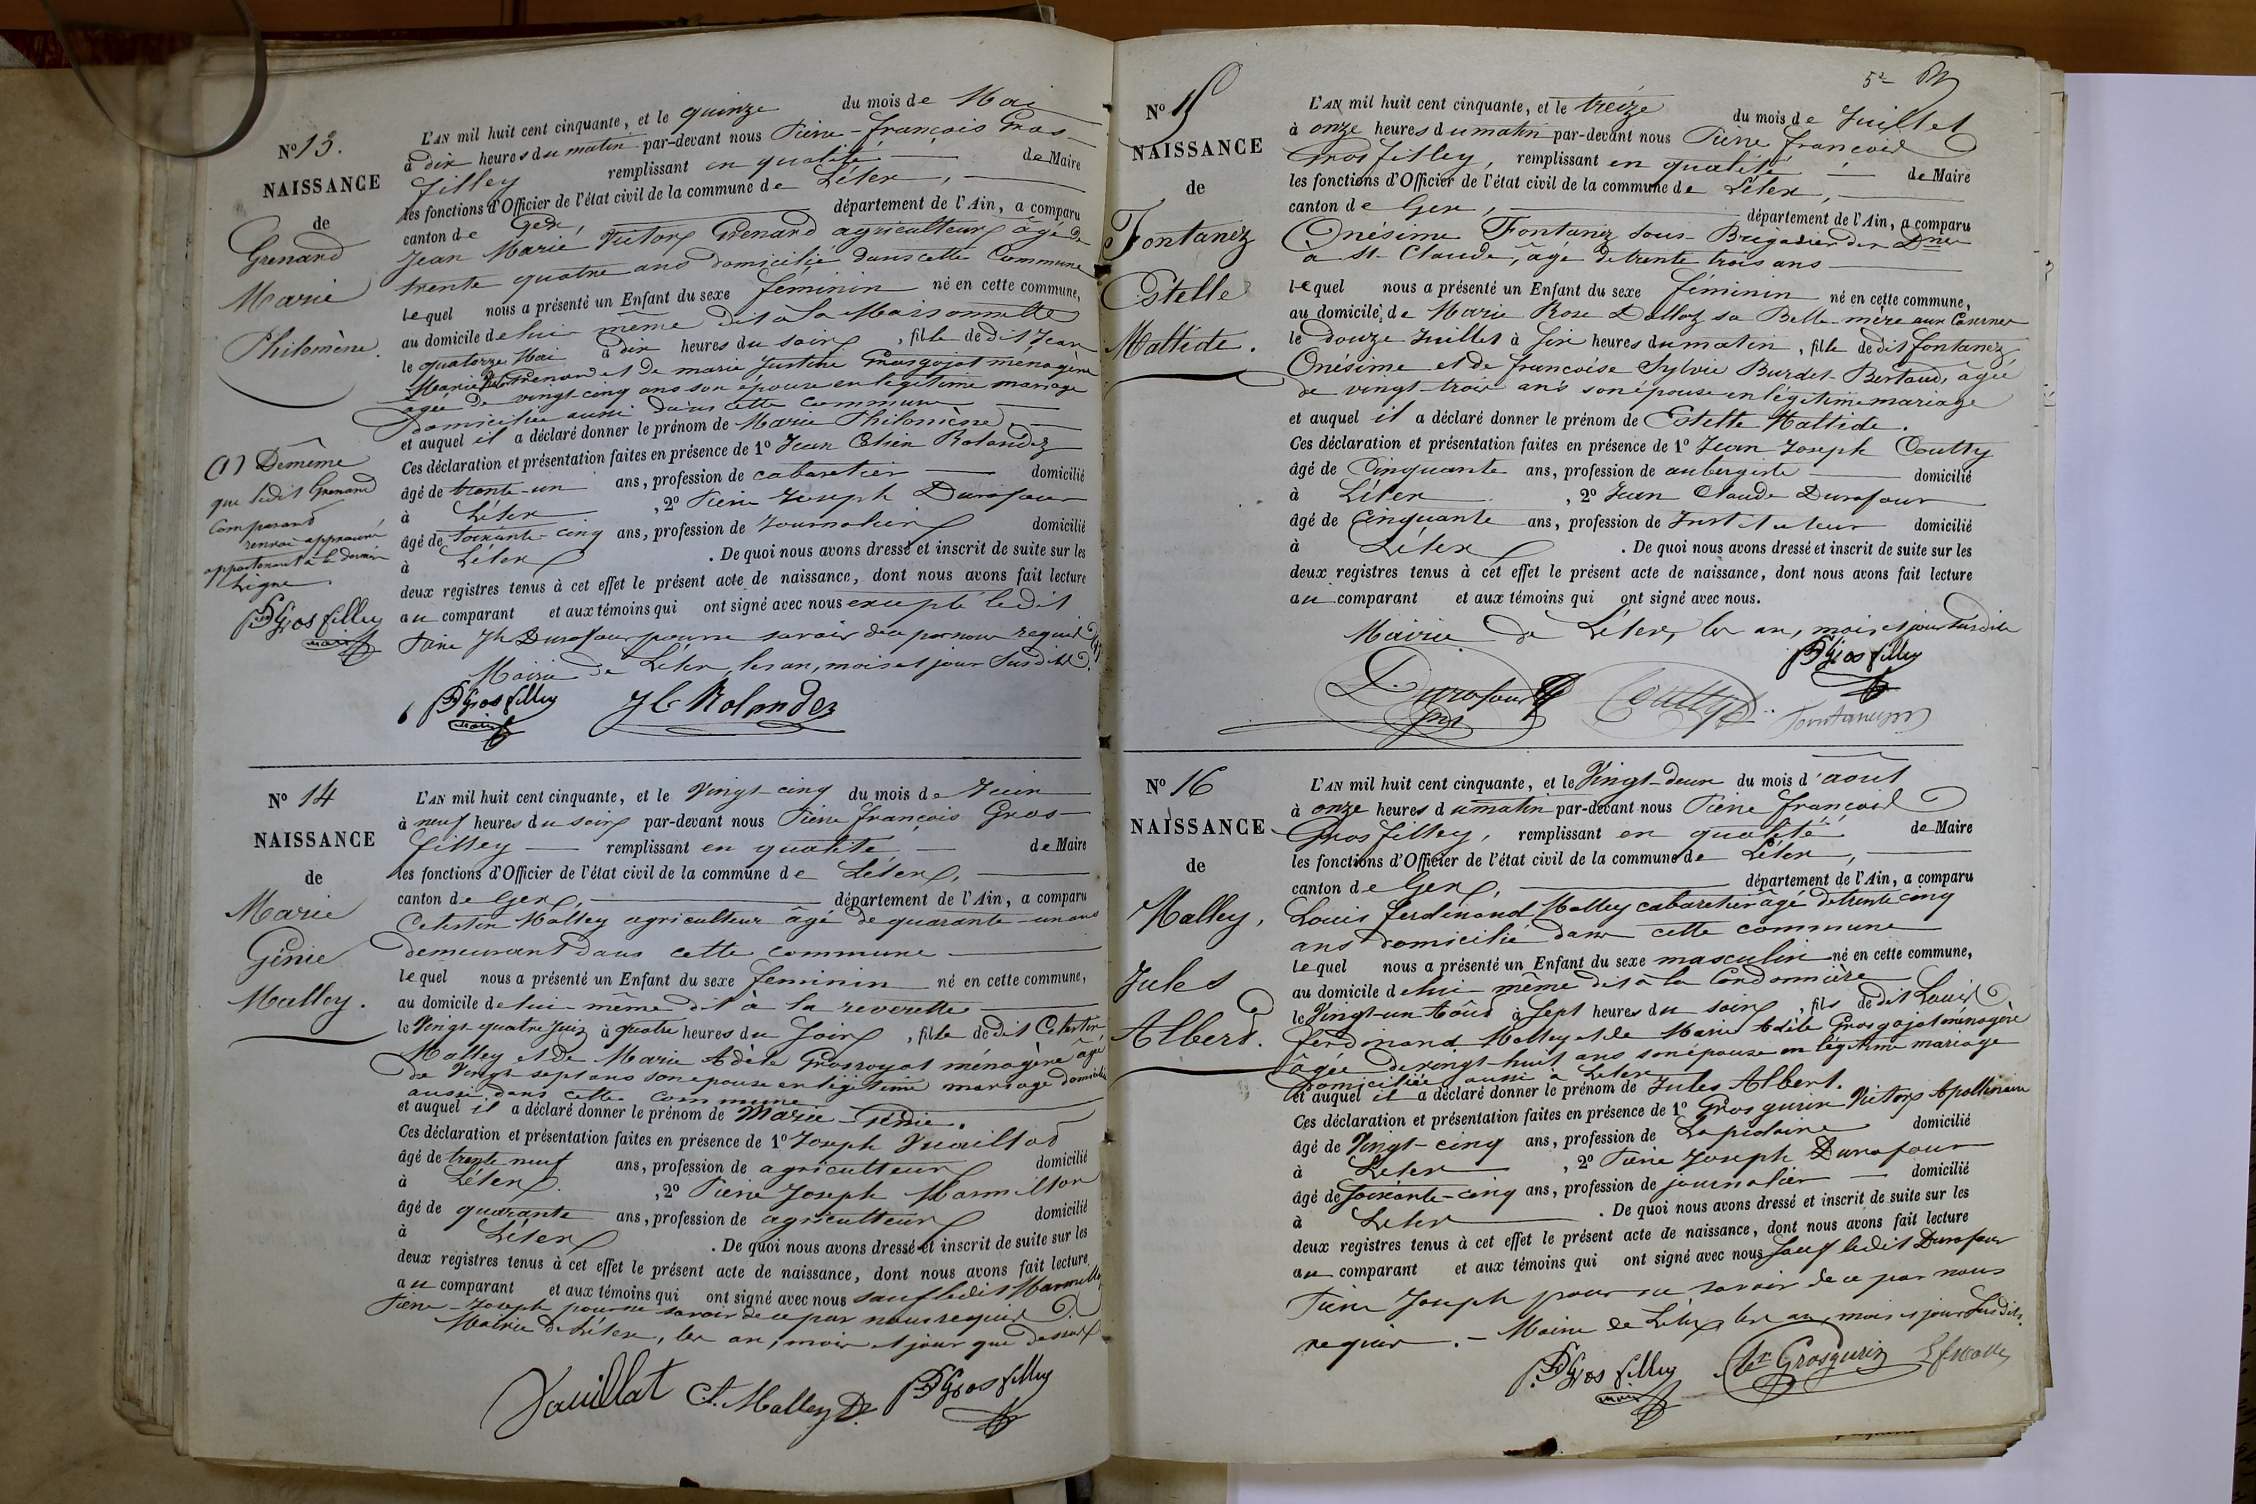 N° 13.
NAISSANCE
de
Grenard
Marie
Philomène.
(1) De même
que ledit Grenard
comparant
renvoi approuvé
appartenant à la dernière
ligne.
Gros fillley
maire
L'AN mil huit cent cinquante, et le quinze du mois de Mai
à dix heures du matin par-devant nous Pierre-françois Gros
filley remplissant en qualité de Maire
les fonctions d'Officier de l'état civil de la commune de Lélex,
canton de Gex département de l'Ain, a comparu
Jean Marie Victor Grenard agriculteur âgé de
trente quatre ans domicilié dans cette Commune
lequel nous a présenté un Enfant du sexe féminin né en cette commune,
au domicile de lui même dit à la Maisonnette
le quatorze Mai à dix heures du soir, fille de dit Jean
Marie Victor Grenard et de marie Justine Grosgojat ménagère
agée de vingt-cinq ans son épouse en légitime mariage
domiciliée aussi dans cette commune
et auquel il a déclaré donner le prénom de Marie Philomène.
Ces déclaration et présentation faites en présence de 1° Jean Rolandez
âgé de trente-un ans, profession de cabaretier domicilié
à Lélex, 2° Pierre Joseph Durafour
âgé de soixante-cinq ans, profession de Journalier domicilié
à Lélex. De quoi nous avons dressé et inscrit de suite sur les
deux registres tenus à cet effet le présent acte de naissance, dont nous avons fait lecture
au comparant et aux témoins qui ont signé avec nous excepté ledit
Pierre Jh Durafour pour ne savoir de ce par nous requis (1)
Mairie de Lélex, les an, mois et jour susdits.
Gros filley
maire
J C Rolandez
N° 14
NAISSANCE
de
Marie
Génie
Malley.
L'AN mil huit cent cinquante, et le Vingt-cinq du mois de Juin
à neuf heures du soir par-devant nous Pierre François Gros-
filley remplissant en qualité de Maire
les fonctions d'Officier de l'état civil de la commune de Lélex,
canton de Gex, département de l'Ain, a comparu
Celestin Malley agriculteur âgé de quarante-un ans
demeurant dans cette commune
lequel nous a présenté un Enfant du sexe féminin né en cette commune,
au domicile de lui-même dit à la reverette
le Vingt quatre Juin à quatre heures du Soir, fille de dit Celestin
Malley et de Marie Adèle Grosgojat ménagère âgé
de Vingt sept ans son epouse en légitime mariage domiciliée
aussi dans cette commune
et auquel il a déclaré donner le prénom de Marie Génie.
Ces déclaration et présentation faites en présence de 1° Joseph Vuaillat
âgé de trente neuf ans, profession de agriculteur domicilié
à Lélex, 2° Pierre Joseph Marmillon
âgé de quarante ans, profession de agriculteur domicilié
à Lélex. De quoi nous avons dressé et inscrit de suite sur les
deux registres tenus à cet effet le présent acte de naissance, dont nous avons fait lecture
au comparant et aux témoins qui ont signé avec nous sauf ledit Marmillon
Pierre-Joseph pour ne savoir de ce par nous requis
Mairie de Lélex, les an, mois et jour que dessus
Vuaillat Ct. Malley Gros filley
5e
N° 15
NAISSANCE
de
Fontanez
Estelle
Maltide.
L'AN mil huit cent cinquante, et le treize du mois de Juillet
à onze heures du matin par-devant nous Pierre françois
Gros filley, remplissant en qualité de Maire
les fonctions d'Officier de l'état civil de la commune de Lélex,
canton de Gex, département de l'Ain, a comparu
Onésime Fontanez Sous-Brigadier des Dnes
à St. Claude, âgé de trente trois ans
lequel nous a présenté un Enfant du sexe féminin né en cette commune,
au domicile de Marie Rose Dalloz sa Belle-mère aux Casernes
le douze Juillet à six heures du matin, fille de dit fontanez
Onésime et de françoise Sylvie Burdet-Bertaud, âgée
de vingt-trois ans son épouse en légitime mariage
et auquel il a déclaré donner le prénom de Estelle Maltide.
Ces déclaration et présentation faites en présence de 1° Jean Joseph Coutty
âgé de Cinquante ans, profession de aubergiste domicilié
à Lélex, 2° Jean Claude Durafour
âgé de Cinquante ans, profession de Instituteur domicilié
à Lélex. De quoi nous avons dressé et inscrit de suite sur les
deux registres tenus à cet effet le présent acte de naissance, dont nous avons fait lecture
au comparant et aux témoins qui ont signé avec nous.
Mairie de Lélex, les an, mois et jour susdits
Gros filley
Durafour Coutty Fontanez
N° 16
NAISSANCE
de
Malley,
Jules
Albert.
L'AN mil huit cent cinquante, et le Vingt-deux du mois d'août
à onze heures du matin par-devant nous Pierre françois
Gros filley, remplissant en qualité de Maire
les fonctions d'Officier de l'état civil de la commune de Lélex,
canton de Gex, département de l'Ain, a comparu
Louis ferdinand Malley cabaretier âgé de trente cinq
ans domicilié dans cette commune
lequel nous a présenté un Enfant du sexe masculin né en cette commune,
au domicile de lui même dit à la Cordonnière
le Vingt-un Août à Sept heures du soir, fils de dit Louis
ferdinand Malley et de Marie Adèle Grosgojat ménagère
âgée de vingt-huit ans son épouse en légitime mariage
Domiciliée aussi à Lélex
et auquel il a déclaré donner le prénom de Jules Albert.
Ces déclaration et présentation faites en présence de 1° Gros gurin Victor Apollinaire
âgé de Vingt-cinq ans, profession de Lapidaire domicilié
à Lélex, 2° Pierre Joseph Durafour
âgé de soixante-cinq ans, profession de journalier domicilié
à Lélex. De quoi nous avons dressé et inscrit de suite sur les
deux registres tenus à cet effet le présent acte de naissance, dont nous avons fait lecture
au comparant et aux témoins qui ont signé avec nous sauf ledit Durafour
Pierre Joseph pour ne savoir de ce par nous
requis. - Mairie de Lélex les an, mois et jour susdits.
Gros filley
maire
Vr Grosgurin L f Malley